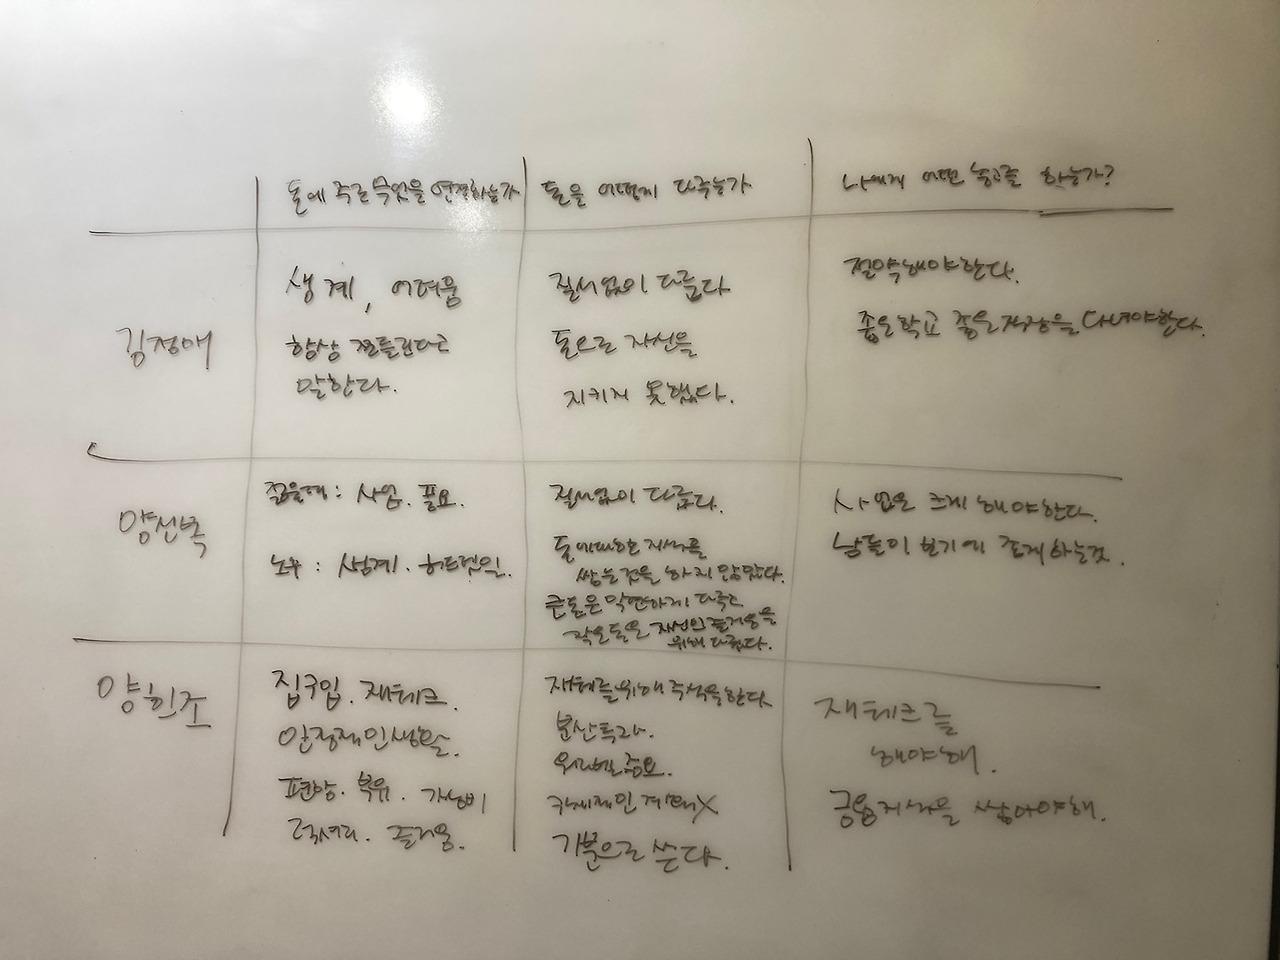 돈에 주로 무엇을 연결하는가
돈을 어떻게 다루는가
나에게 어떤 충고를 하는가?
김정애
생계, 어려움
항상 쪼들린다고
말한다.
질서없이 다룬다
돈으로 자신을
지키지 못했다.
절약해야한다.
좋은학교 좋은직장을 다녀야한다.
양선복
젊을때: 사업. 풍요.
노후: 생계. 허드렛일.
질서없이 다룬다.
돈에대한 지식을
쌓는것을 하지 않았다.
큰돈은 막연하게 다루고
작은돈은 자신의 즐거움을
위해 다뤘다.
사업은 크게 해야한다.
남들이 보기에 좋게하는것.
양희조
집구입. 재테크.
안정적인생활.
편안. 복유. 가성비
럭셔리. 즐거움.
재테크를위해 주식을한다
분산투자.
워라벨중요.
기분으로 쓴다.
재테크를
해야해.
금융지식을 쌓아야해.